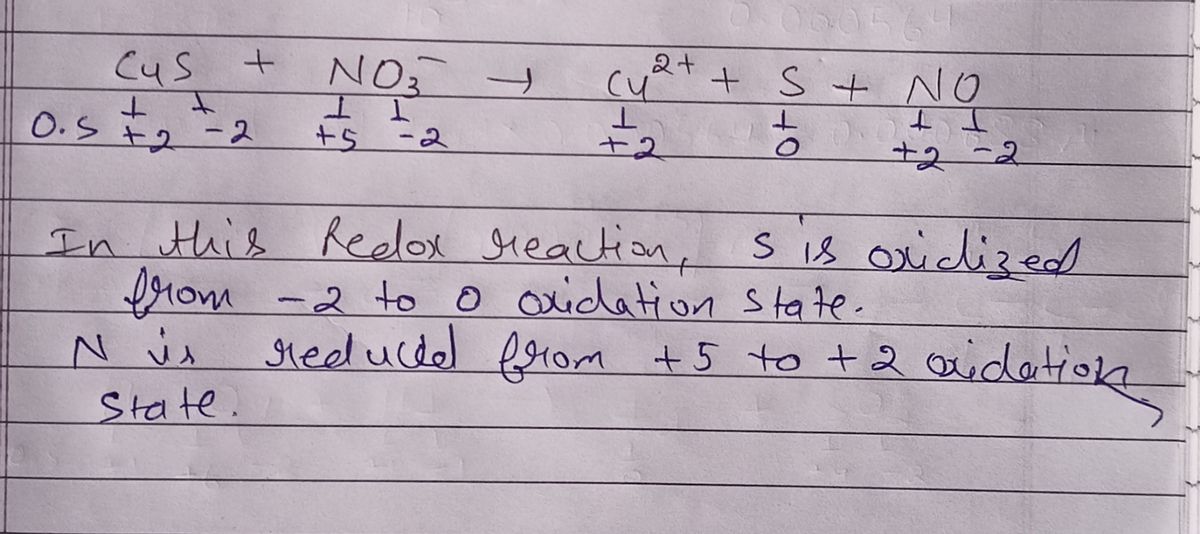 CuS + NO₃⁻ → Cu²⁺ + S + NO
O.S +2 -2 +5 -2 +2 0 +2 -2
In this Redox reaction, S is oxidized
from -2 to 0 oxidation state.
N is reduced from +5 to +2 oxidation
state.